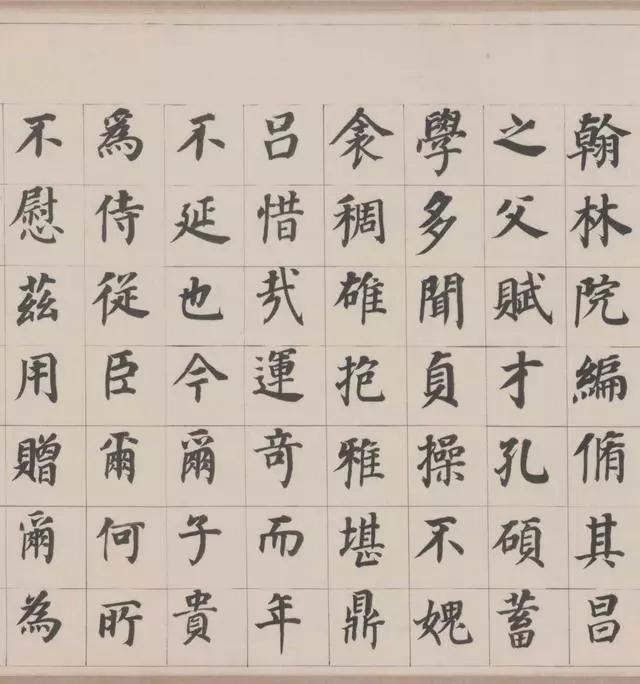 翰林院編脩其昌
之父賦才孔碩蓄
學多聞貞操不媿
衾稠雄抱雅堪鼎
呂惜㦲運奇而年
不延也今爾子貴
為侍從臣爾何所
不慰茲用贈爾為